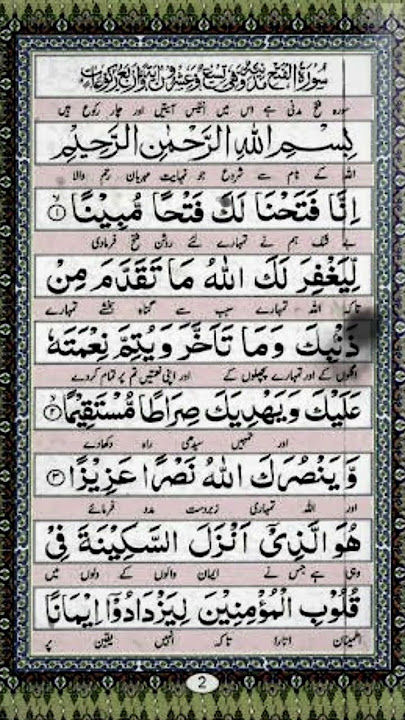 سُوْرَةُ الْفَتْحِ مَدَنِيَّةٌ وَّهِيَ تِسْعٌ وَّعِشْرُوْنَ اٰيَةً وَّاَرْبَعُ رُكُوْعَاتٍ
سورہ فتح مدنی ہے اس میں انتیس آیتیں اور چار رکوع ہیں
بِسْمِ اللهِ الرَّحْمٰنِ الرَّحِيْمِ
اللہ کے نام سے شروع جو نہایت مہربان رحم والا
اِنَّا فَتَحْنَا لَكَ فَتْحًا مُّبِيْنًا ۙ۱
بے شک ہم نے تمہارے لئے روشن فتح فرمادی
لِّيَغْفِرَ لَكَ اللهُ مَا تَقَدَّمَ مِنْ
تاکہ اللہ تمہارے سبب سے گناہ بخشے تمہارے
ذَنْۢبِكَ وَمَا تَاَخَّرَ وَيُتِمَّ نِعْمَتَهٗ
اگلوں کے اور تمہارے پچھلوں کے اور اپنی نعمتیں تم پر تمام کردے
عَلَيْكَ وَيَهْدِيَكَ صِرَاطًا مُّسْتَقِيْمًا ۙ۲
اور تمہیں سیدھی راہ دکھادے
وَّيَنْصُرَكَ اللهُ نَصْرًا عَزِيْزًا ۳
اور اللہ تمہاری زبردست مدد فرمائے
هُوَ الَّذِيْۤ اَنْزَلَ السَّكِيْنَةَ فِيْ
وہی ہے جس نے ایمان والوں کے دلوں میں
قُلُوْبِ الْمُؤْمِنِيْنَ لِيَزْدَادُوْۤا اِيْمَانًا
اطمینان اتارا تاکہ انہیں یقین پر
2